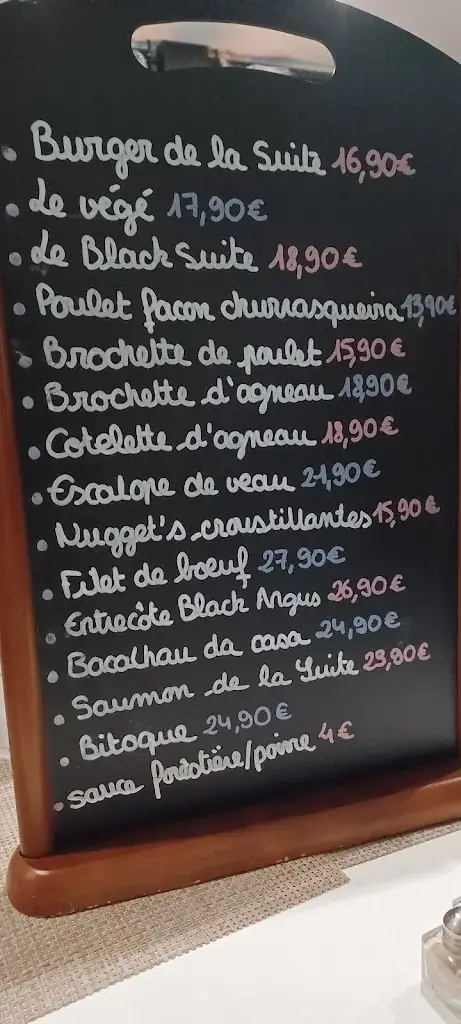 Burger de la Suite 16,90€
Le végé 17,90€
Le Black Suite 18,90€
Poulet façon churrasqueira 13,90€
Brochette de poulet 15,90€
Brochette d'agneau 18,90€
Cotelette d'agneau 18,90€
Escalope de veau 21,90€
Nugget's croustillantes 15,90€
Filet de boeuf 27,90€
Entrecôte Black Angus 26,90€
Bacalhau da casa 24,90€
Saumon de la Suite 23,90€
Bitoque 24,90€
sauce forestière/poivre 4€